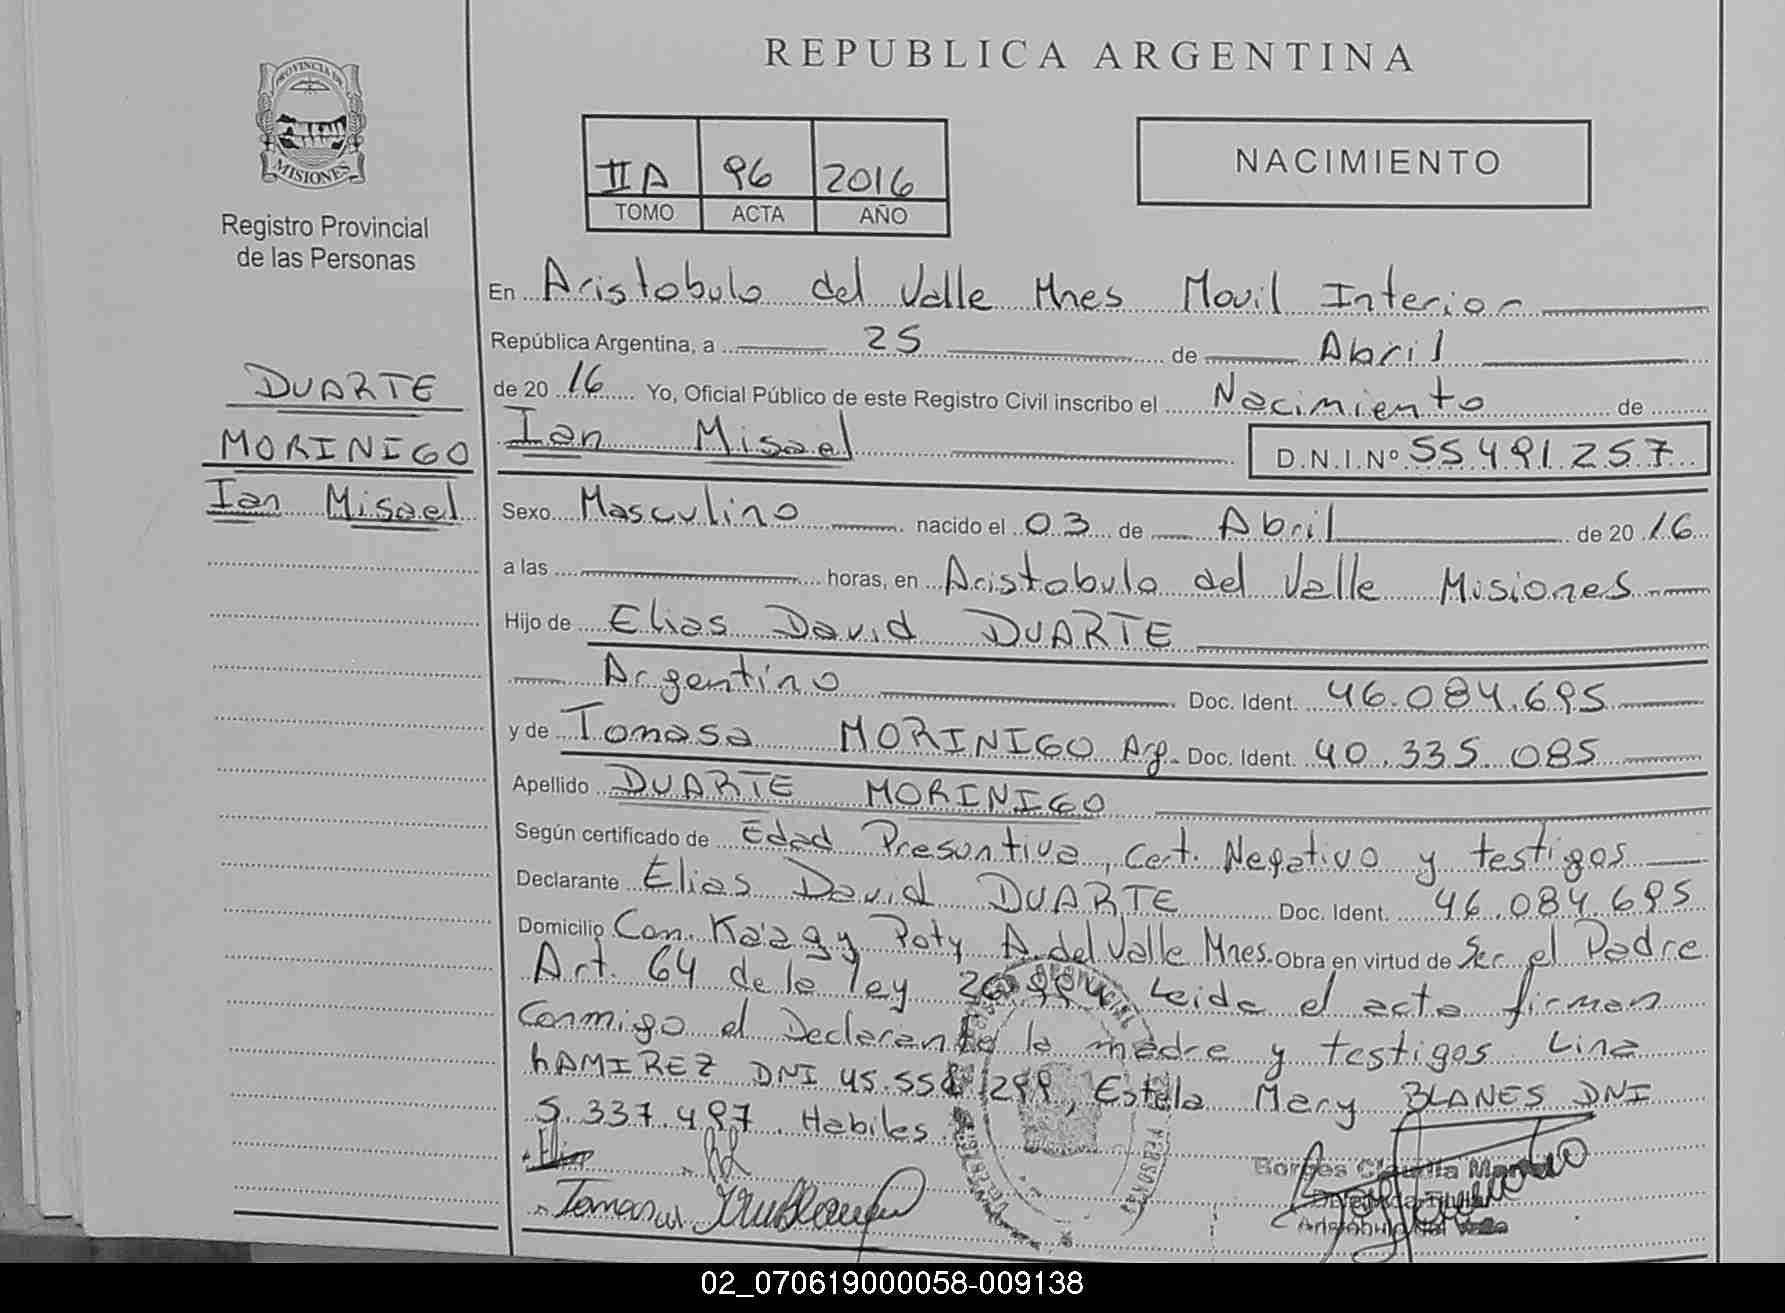 REPUBLICA ARGENTINA
PROVINCIA DE
MISIONES
Registro Provincial
de las Personas
IIA 96 2016
TOMO ACTA AÑO
NACIMIENTO
En Aristobulo del Valle Mnes Movil Interior
República Argentina, a 25 de Abril
de 20 16 Yo, Oficial Público de este Registro Civil inscribo el Nacimiento de
Ian Misael D.N.I.Nº 55.491.257
DUARTE
MORINIGO
Ian Misael
Sexo Masculino nacido el 03 de Abril de 20 16
a las horas, en Aristobulo del Valle Misiones
Hijo de Elias David DUARTE
Argentino Doc. Ident. 46.084.695
y de Tomasa MORINIGO Arg. Doc. Ident. 40.335.085
Apellido DUARTE MORINIGO
Según certificado de Edad Presuntiva, Cert. Negativo y testigos
Declarante Elias David DUARTE Doc. Ident. 46.084.695
Domicilio Com. Ka'agy Poty A. del Valle Mnes. Obra en virtud de Ser el Padre
Art. 64 de la ley Leida el acta firman
Conmigo el Declarante la madre y testigos Lina
RAMIREZ DNI Estela Mery BLANES DNI
5.337.497. Habiles.
Tomasa
02_070619000058-009138